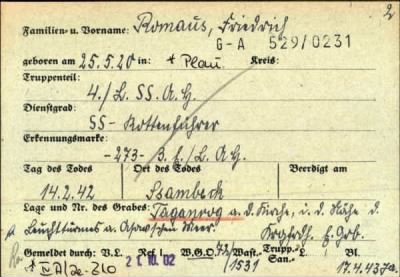 2
Familien- u. Vorname: Romaus, Friedrich
G-A 529/0231
geboren am 25.5.20 in: + Plau. Kreis:
Truppenteil: 4./L. SS. A. H.
Dienstgrad: SS-Rottenführer
Erkennungsmarke: -273- B. E./L. A. H.
Tag des Todes Ort des Todes Beerdigt am
14.2.42 Ssambek
Lage und Nr. des Grabes: Taganrog a. d. Kirche, i. d. Nähe d.
Leuchtturms a. Asowschen Meer.
Gemeldet durch: V.L. Ref W.G.O. 72/1531 Wast.- Trupp.- San.- L. Bl.
21.10.02 17.4.43